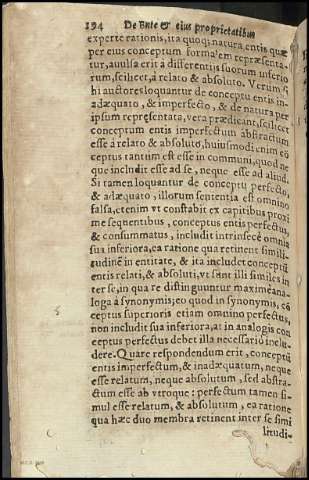 194 De Ente & eius proprietatibus
experte rationis, ita quoq; natura entis quæ
per eius conceptum forma em repræsenta-
tur, auulsa erit à differentiis suorum inferio
rum, scilicet, à relato & absoluto. Verum si
hi auctores loquantur de conceptu entis in-
adæquato, & imperfecto, & de natura per
ipsum repræsentata, vera prædicant, scilicet
conceptum entis imperfectum abstractum
esse à relato & absoluto, huiusmodi enim cõ
ceptus tantum est esse in communi, quod ne
que includit esse ad se, neque esse ad aliud.
Si tamen loquantur de conceptu perfecto,
& adæquato, illorum sententia est omnino
falsa, etenim vt constabit ex capitibus proxi
me sequentibus, conceptus entis perfectus,
& consummatus, includit intrinsecè omnia
sua inferiora, ea ratione qua retinent simili-
tudinẽ in entitate, & ita includet conceptũ
entis relati, & absoluti, vt sunt illi similes in
ter se, in qua re distinguuntur maximè ana-
loga à synonymis; eo quod in synonymis, cõ
ceptus superioris etiam omnino perfectus,
non includit sua inferiora, at in analogis con
ceptus perfectus debet illa necessario inclu-
dere. Quare respondendum erit, conceptũ
entis imperfectum, & inadæquatum, neque
esse relatum, neque absolutum, sed abstra-
ctum esse ab vtroque: perfectum tamen si-
mul esse relatum, & absolutum, ea ratione
qua hæc duo membra retinent inter se simi
litudi-